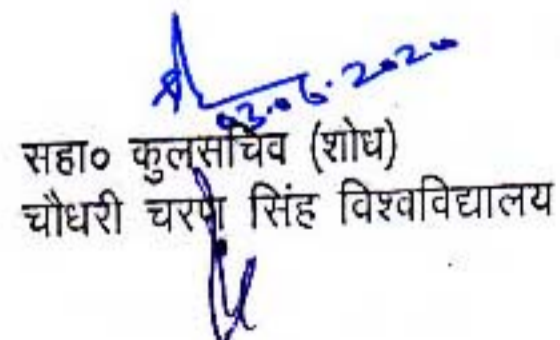 03.06.2020
सहा० कुलसचिव (शोध)
चौधरी चरण सिंह विश्वविद्यालय